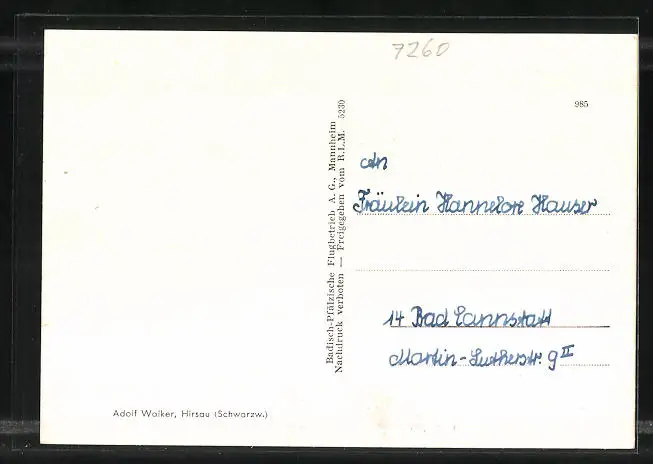 7260
985
Badisch-Pfälzische Flugbetrieb A. G., Mannheim
Nachdruck verboten — Freigegeben vom R. L. M. 5230
An
Fräulein Hannelore Hauser
14 Bad Cannstatt
Martin-Lutherstr. 9 II
Adolf Walker, Hirsau (Schwarzw.)